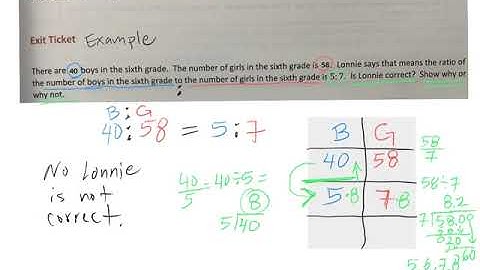 Exit Ticket Example
There are 40 boys in the sixth grade. The number of girls in the sixth grade is 58. Lonnie says that means the ratio of
the number of boys in the sixth grade to the number of girls in the sixth grade is 5:7. Is Lonnie correct? Show why or
why not.
:
B:G
40:58 = 5:7
No Lonnie
is not
correct.
40/5 = 40÷5 =
8
5)40
B G
40 58
5·8 7·8
58/7
58÷7
8.2
7)58.00
20
60
5 6 7 8